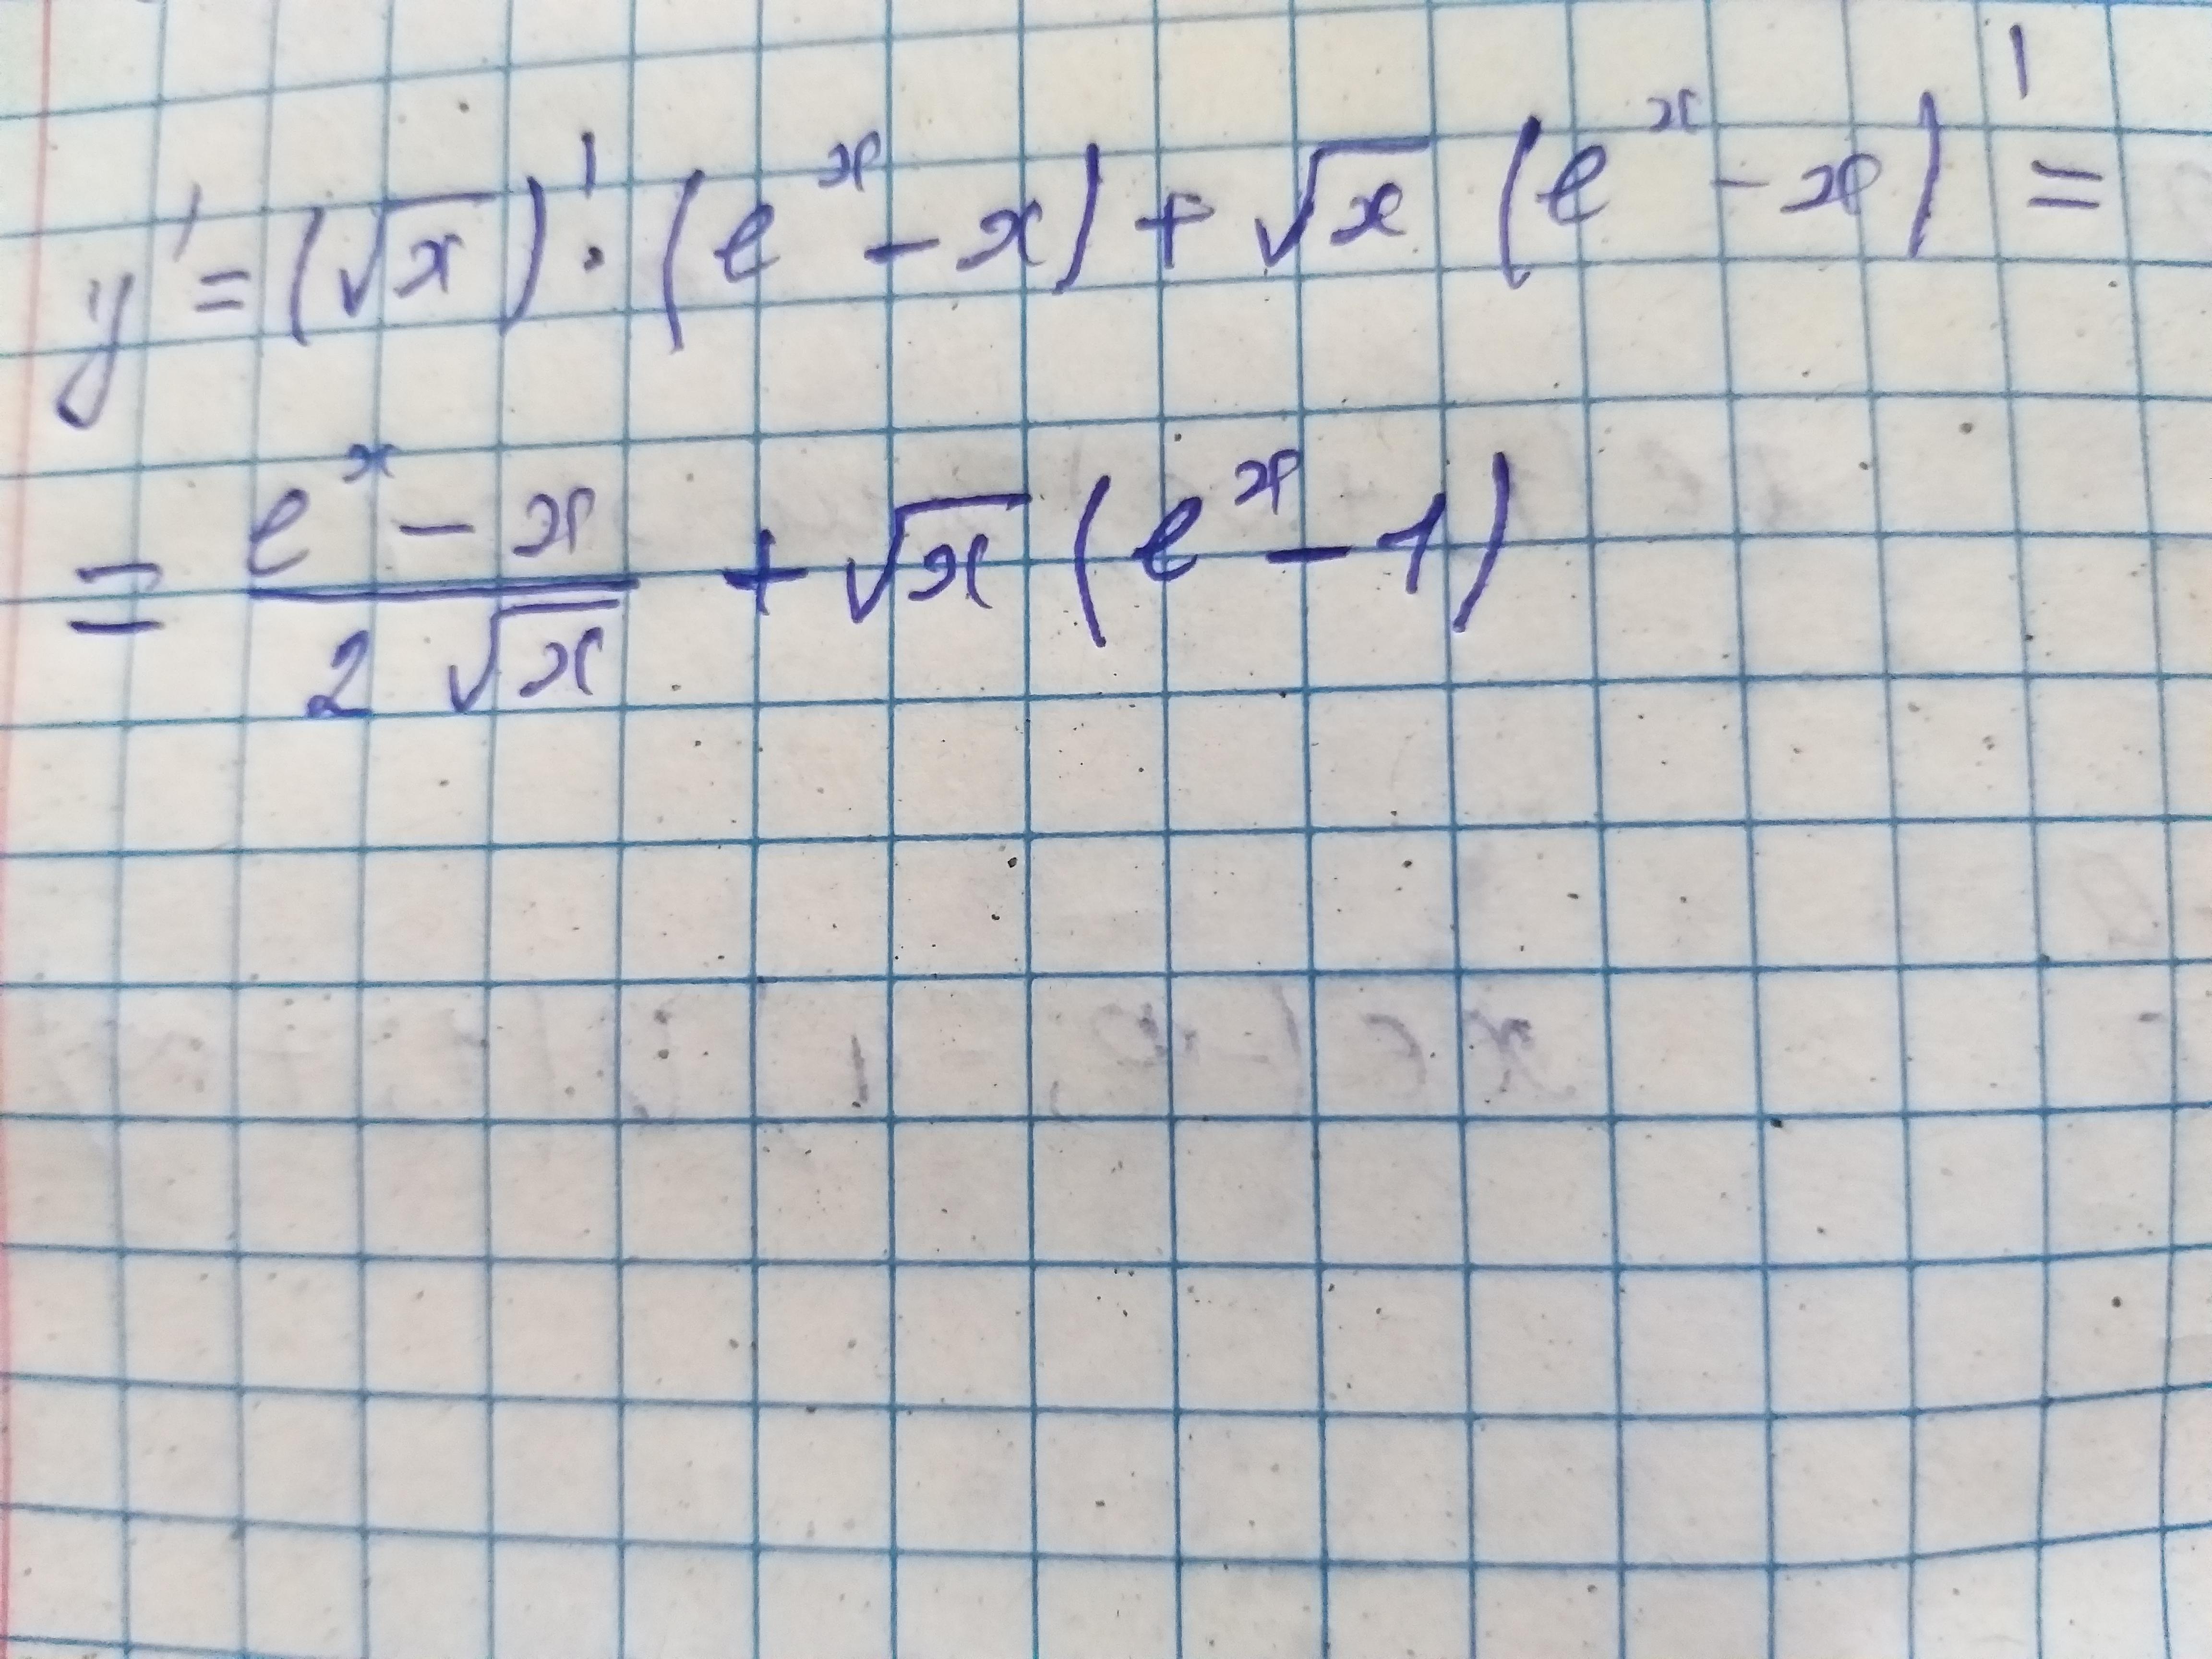 y' = (√x)' · (e^x - x) + √x (e^x - x)' =
= (e^x - x)/(2√x) + √x (e^x - 1)